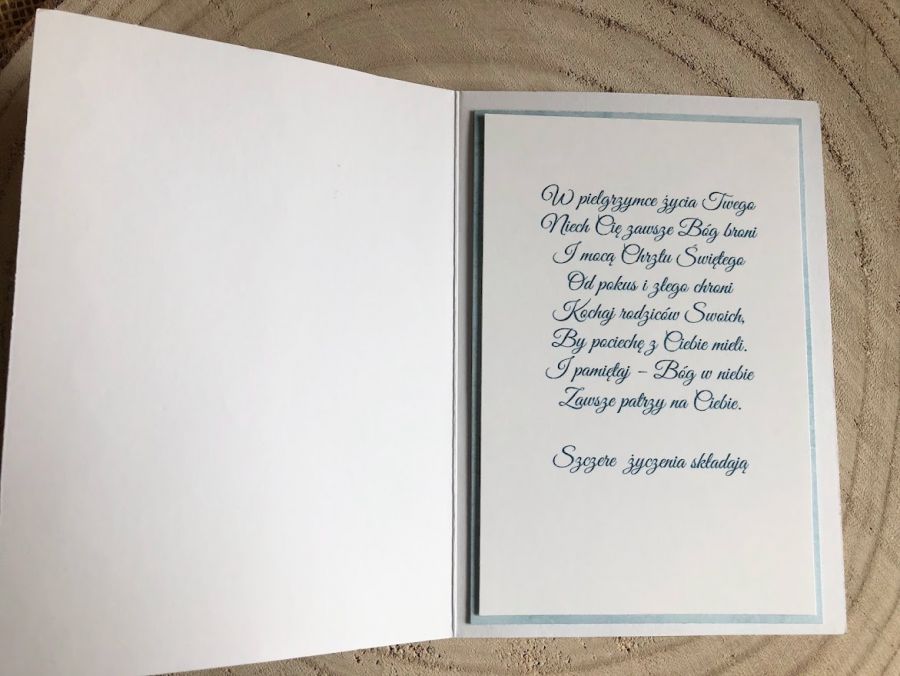 W pielgrzymce życia Twego
Niech Cię zawsze Bóg broni
I mocą Chrztu Świętego
Od pokus i złego chroni
Kochaj rodziców Swoich,
By pociechę z Ciebie mieli.
I pamiętaj – Bóg w niebie
Zawsze patrzy na Ciebie.
Szczere życzenia składają